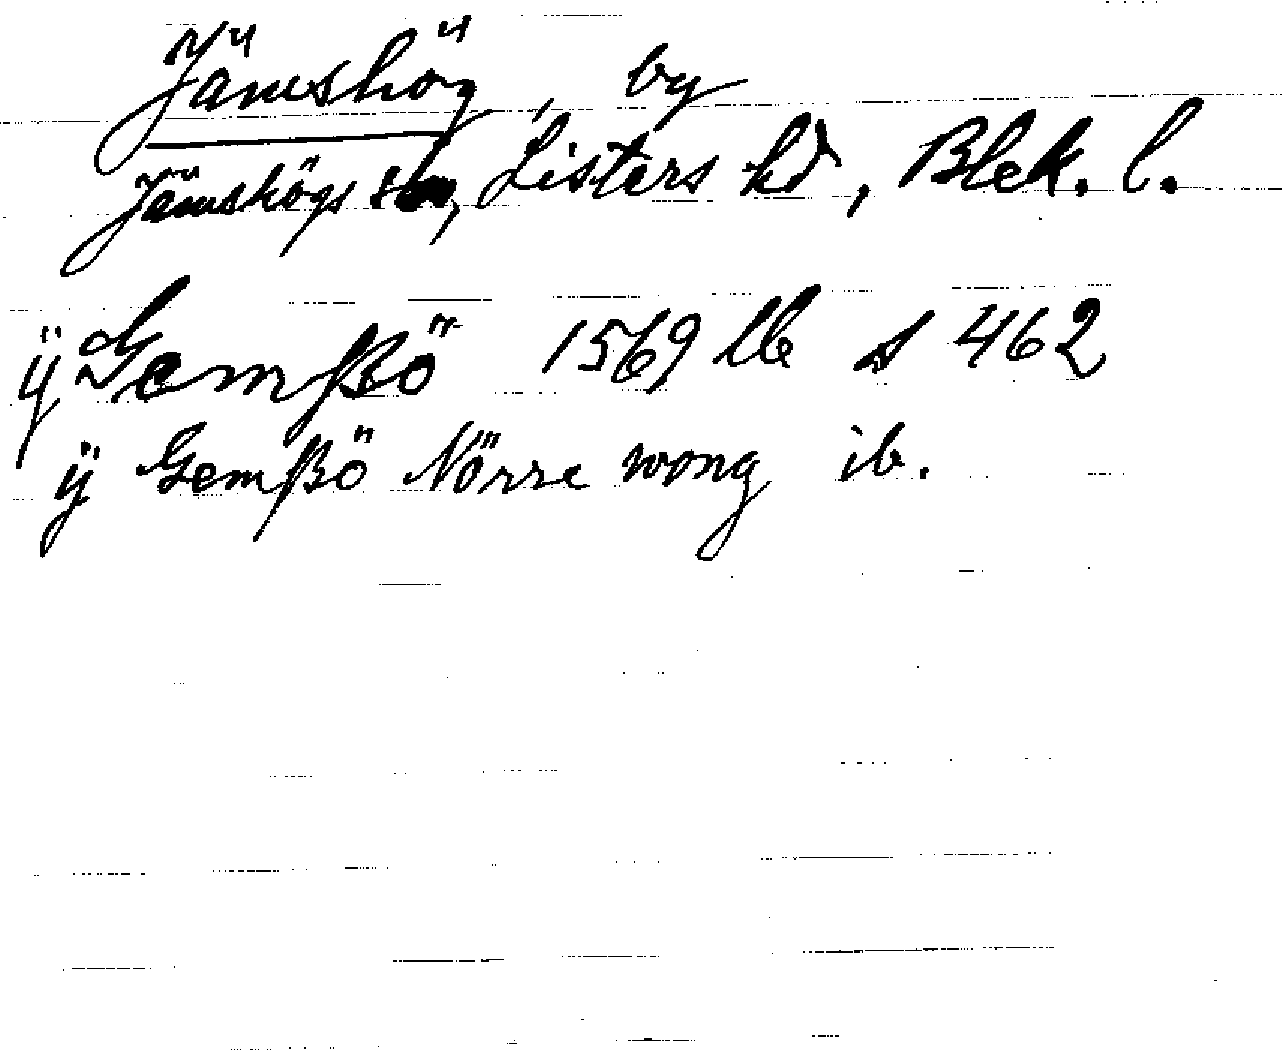 Jämshög, by
Jämshögs sn, Listers hd, Blek. l.
ÿ Gemßö 1569 lb s 462
ÿ Gemßö Nörre wong ib.